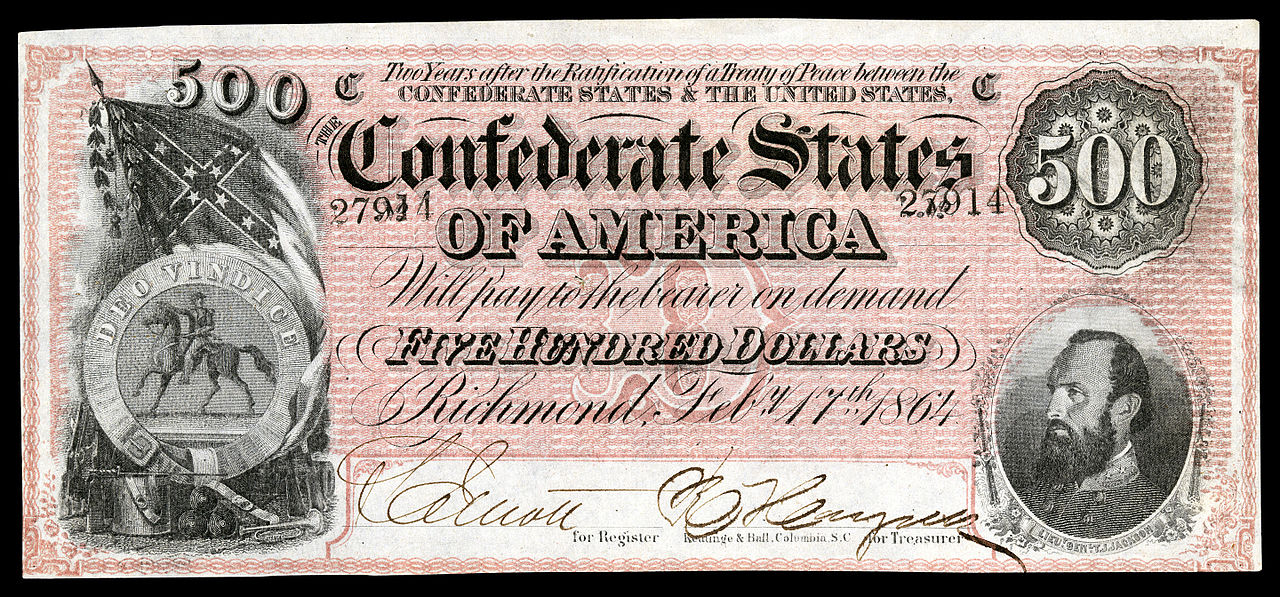 500
C Two Years after the Ratification of a Treaty of Peace between the C
CONFEDERATE STATES & THE UNITED STATES,
500
THE Confederate States
27914 27914
OF AMERICA
Will pay to the bearer on demand
D
FIVE HUNDRED DOLLARS
Richmond, Feby. 17th. 1864.
DEO VINDICE
for Register Keatinge & Ball, Columbia, S.C. for Treasurer
LIEUT. GEN. T.J. JACKSON